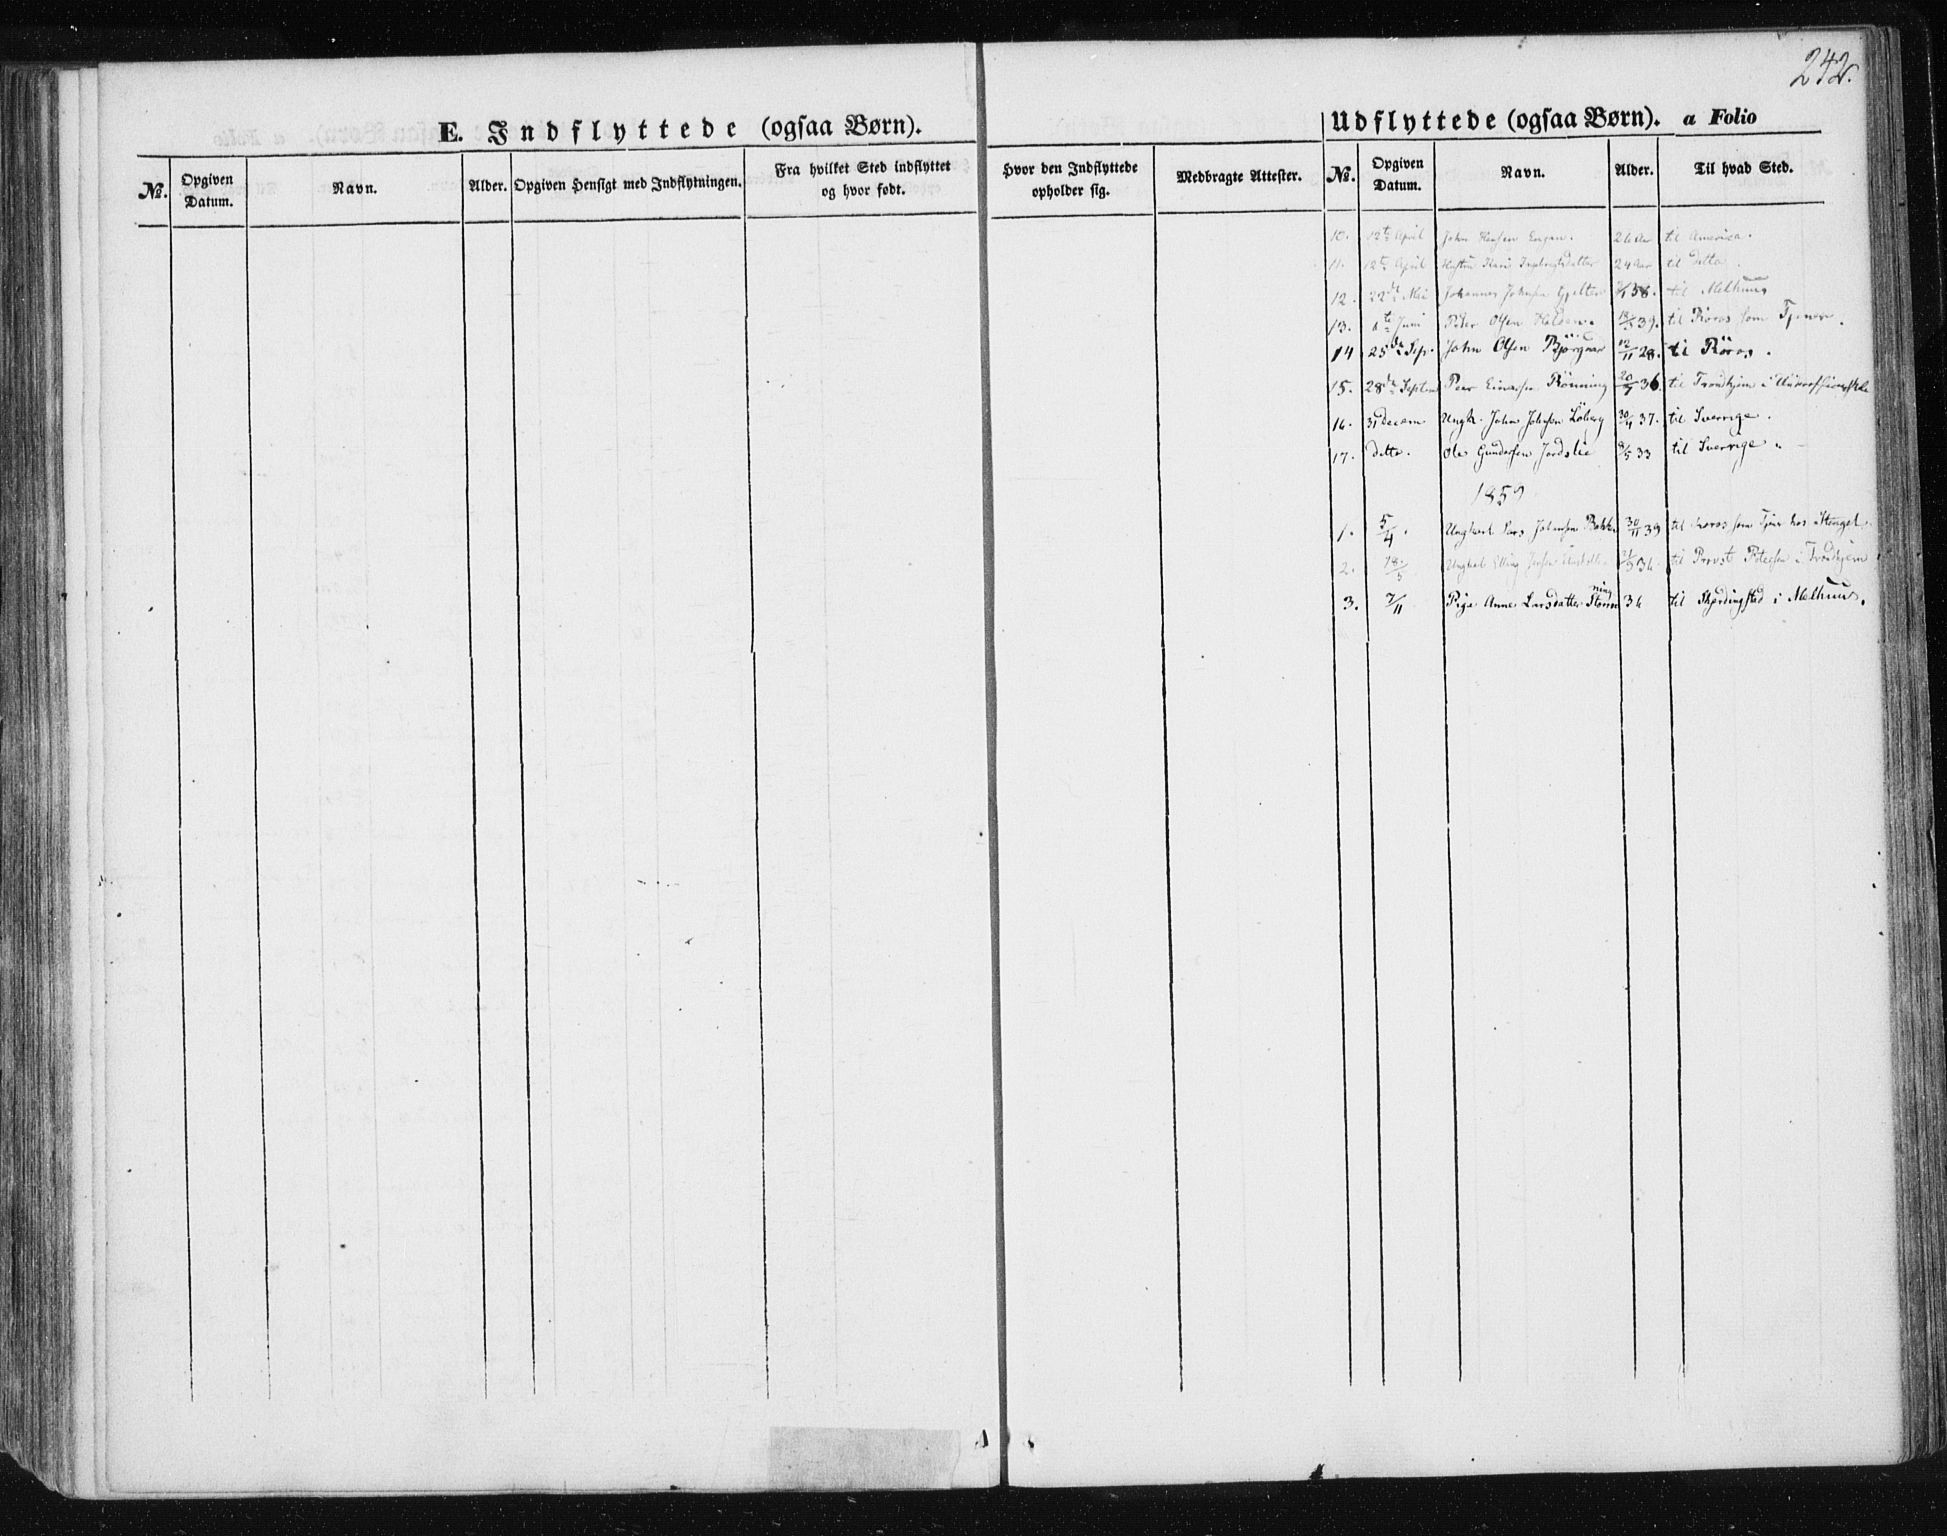 242.
E. Indflyttede (ogsaa Børn).
No. Opgiven Datum. Navn. Alder. Opgiven Hensigt med Indflytningen. Fra hvilket Sted indflyttet og hvor født.
Hvor den Indflyttede opholder sig. Medbragte Attester.
Udflyttede (ogsaa Børn). a Folio
No. Opgiven Datum. Navn. Alder. Til hvad Sted.
10. 12te April John Hansen Engen. 26 Aar til America.
11. 12te April Hustru Kari Ingebrigtsdatter 24 Aar til ditto.
12. 22de Mai Johannes Johnsen 38. til Melhuus
13. Juni Peder Olsen 39. til Röros som Tjener.
14 25de Sep. John Olsen 12/11 28. til Röros.
15. 28de Septem Peer Einarsen Rönning 20/7 36. til Trondhjem i
16. 31 decem Ungk. John Johnsen Löberg 30/4 37. til Sverrige.
17. ditto. Ole Gundersen Jordslie 33 til Sverrige "
1859
1. 5/4. Ungkarl Lars Johnsen Bakken 30/11 39 til Roros som Tjen hos
2. 18/5 Ungkarl Elling Jensen 36. til Provst i Trondhjem
3. 7/11 Pige Anne Larsdatter Störning 36 til Skjerdingstad i Melhuus.